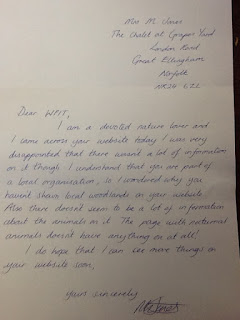 Mrs M Jones
The Chalet at Grapes Yard
London Road
Great Ellingham
Norfolk
NR17
Dear WPIT,
I am a devoted nature lover and
I came across your website today. I was very
disappointed that there wasnt a lot of information
on it though. I understand that you are part of
a local organisation, so I wondered why you
havent shown local woodlands on your website.
Also there doesnt seem to be a lot of information
about the animals on it. The page with nocturnal
animals doesn't have anything on at all!
I do hope that I can see more things on
your website soon,
Yours sincerely